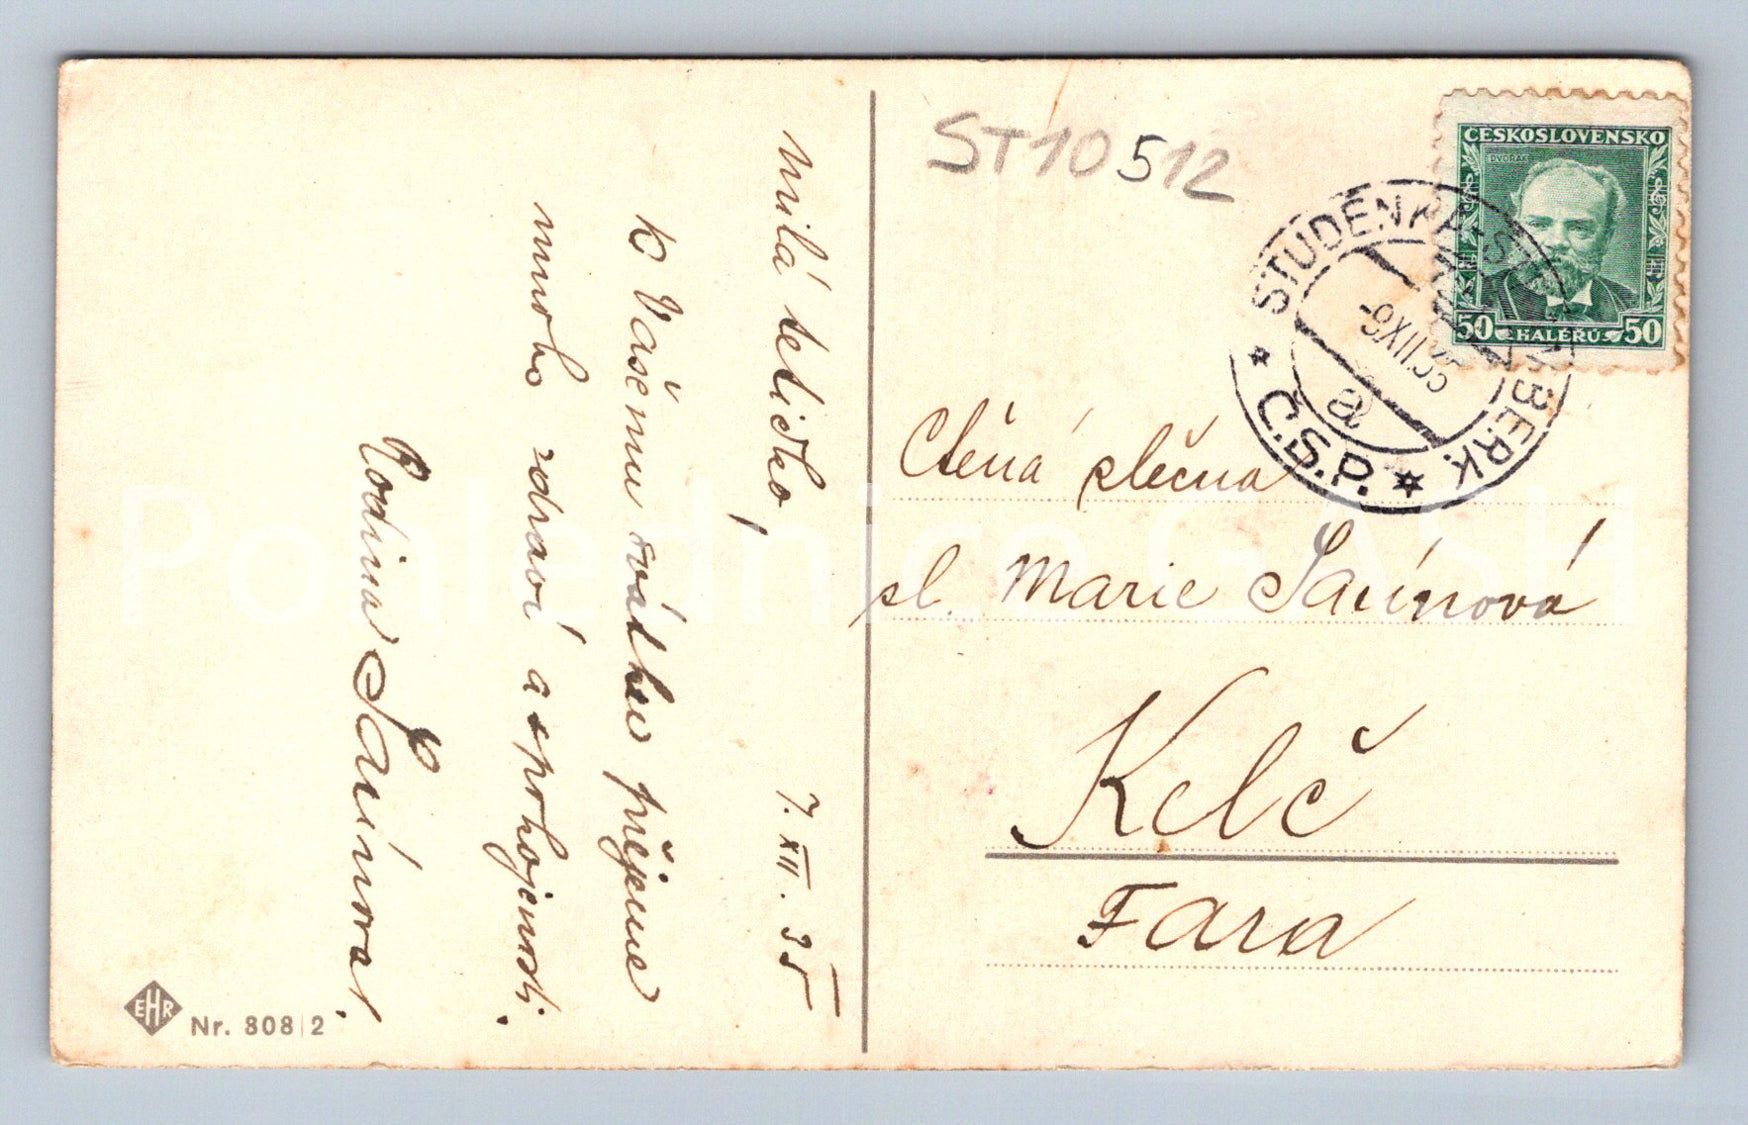 Milá tetičko,
7. XII. 35
K Vašemu svátku přejeme
mnoho zdraví a spokojenosti.
Rodina
ST10512
ČESKOSLOVENSKO
DVOŘÁK
50 HALÉŘŮ 50
STUDÉNKA-ŠTERNBERK
-6.XII.35
Č.S.P.
Ctěná slečna
sl. Marie
Kelč
Fara
EHR
Nr. 808|2
Pohlednice GASH